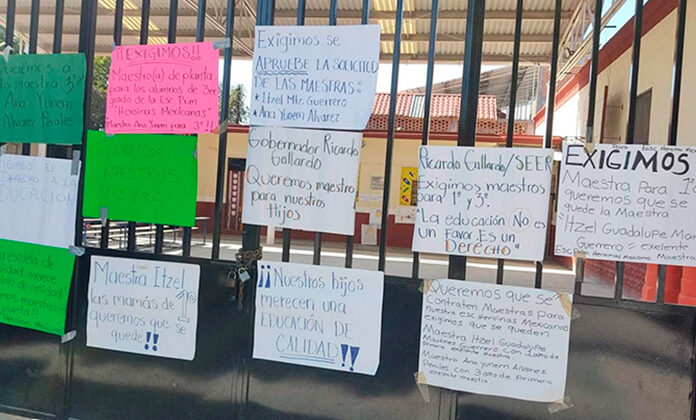 Queremos a
la maestra 3º
Ana Yunem
Alvarez Perales
¡¡EXIGIMOS!!
Maestro(a) de planta
para los alumnos de 3er
grado de la Esc. Prim.
"Heroinas Mexicanas"
Maestra Ana Yunem para 3º!!
Exigimos se
APRUEBE LA SOLICITUD
DE LAS MAESTRAS:
Itzel Mtz. Guerrero
Ana Yunem Alvarez
QUEREMOS
MAESTROS
EL DERECHO A LA
EDUCACIÓN
Gobernador Ricardo
Gallardo
Queremos maestro
para nuestros
Hijos
Ricardo Gallardo/SEER
Exigimos maestros
para 1º y 3º.
La educación No es
un Favor. Es un
Derecho
EXIGIMOS
Maestra Para 1º
queremos que se
quede la Maestra
"Itzel Guadalupe Martinez
Guerrero" = exelente
Esc. Heroinas Mexicanas
escuela de
calidad merece
de calidad
maestros
planta!!
Maestra Itzel
las mamás de 1º
queremos que se
quede!!
¡¡Nuestros hijos
merecen una
EDUCACIÓN DE
CALIDAD!!
Queremos que se
Contraten Maestras para
esc Heroinas Mexicanas
exigimos que se queden
Maestra Itzel Guadalupe
Martinez Guerrero Con 1 año de
primaria exelente Maestra
Maestra Ana yunem Alvarez
Perales con 3 año de primaria
exelente maestra.